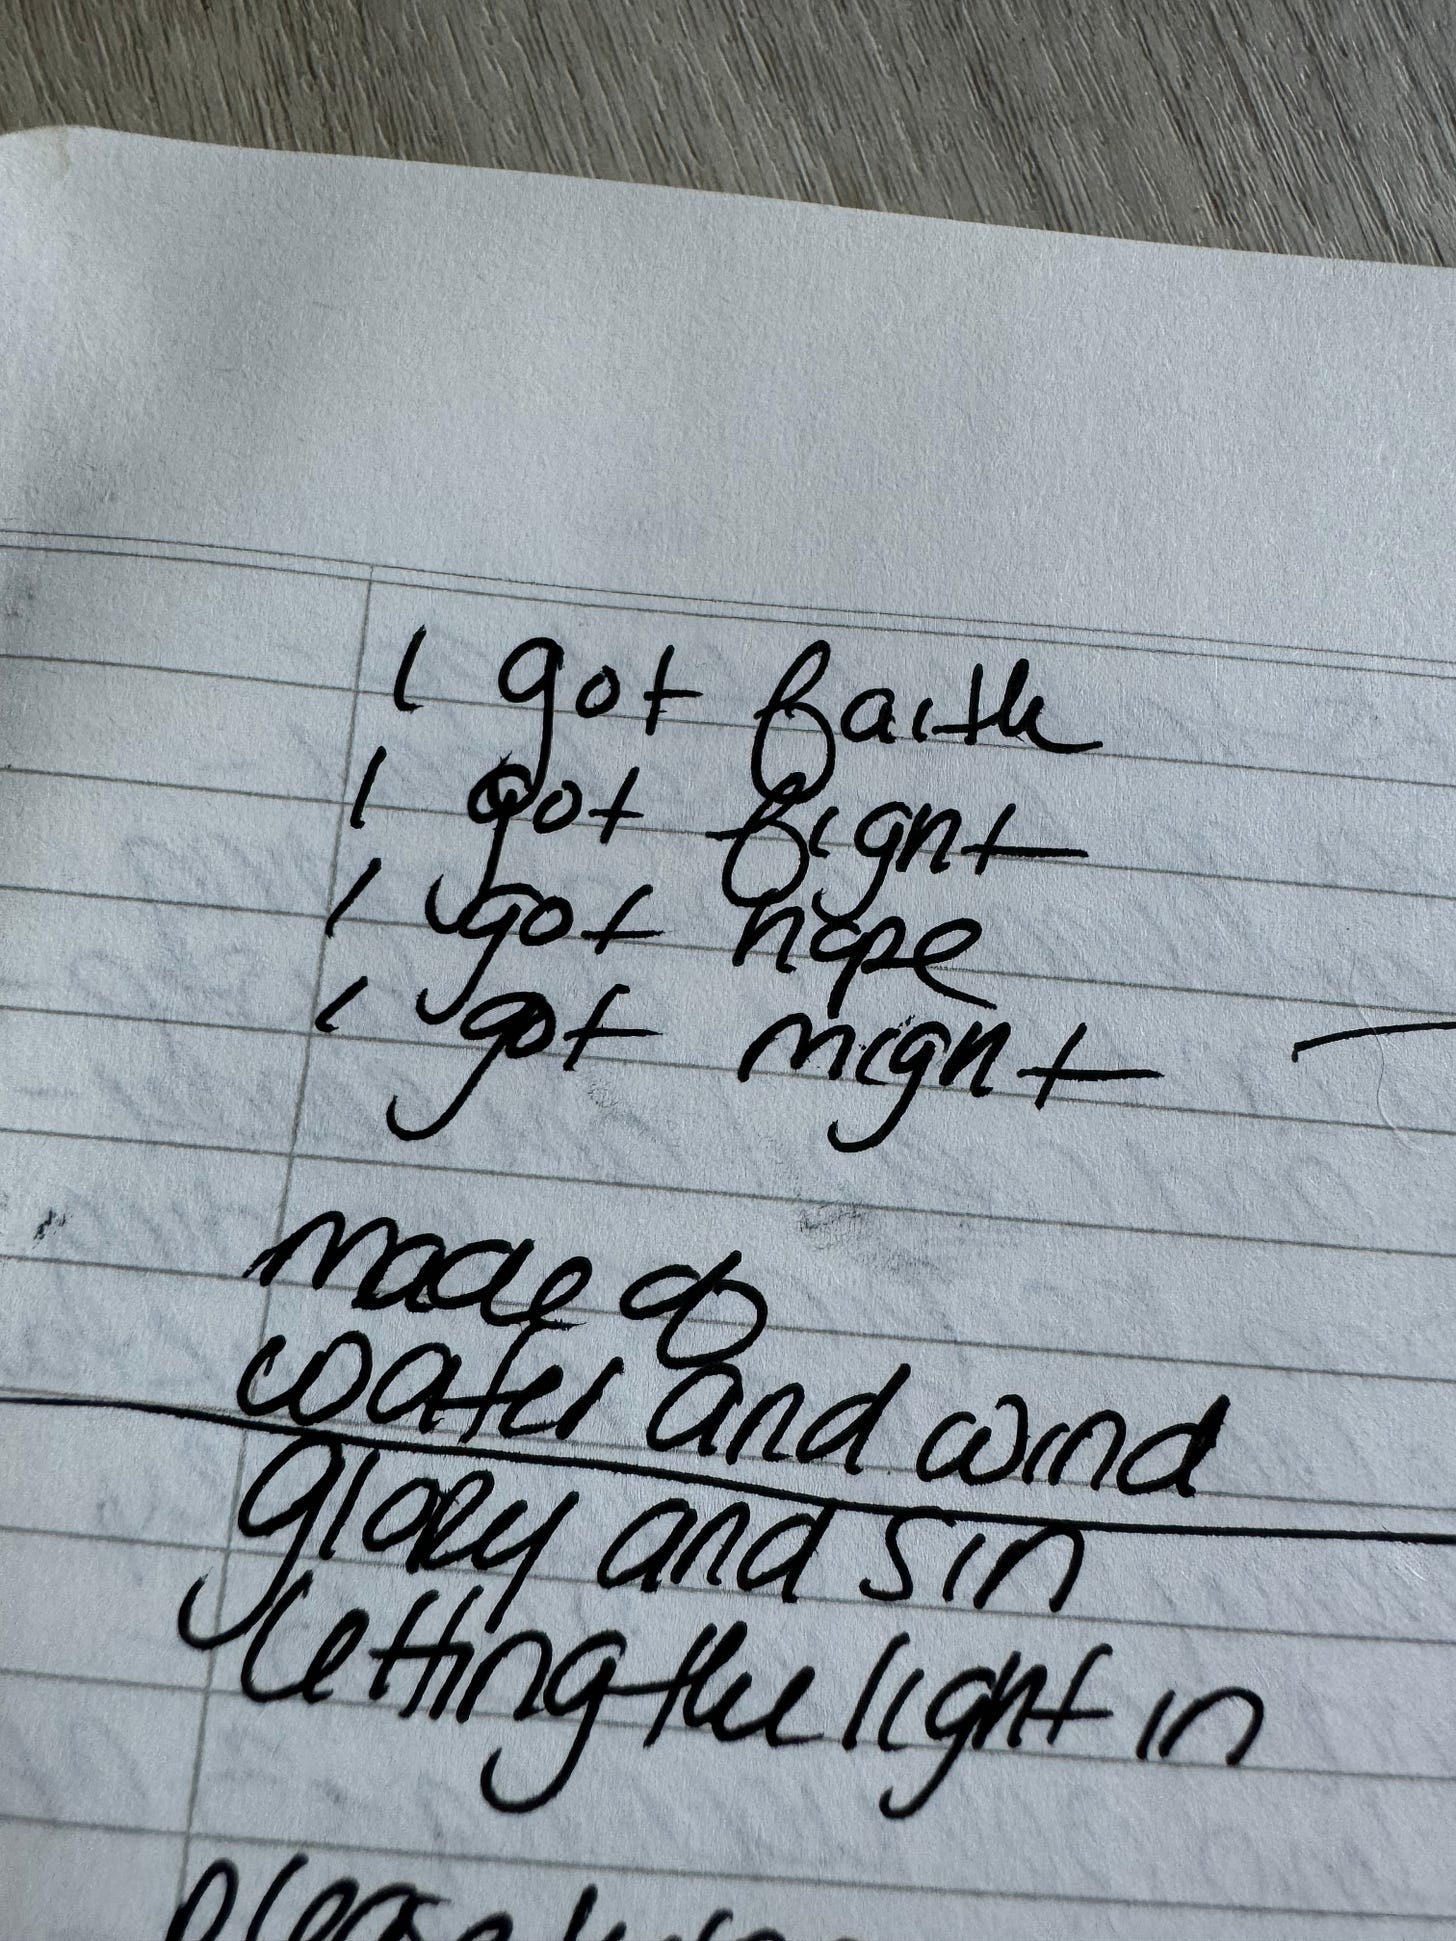 I got faith
I got fight
I got hope
I got might
made of
water and wind
glory and sin
letting the light in
please